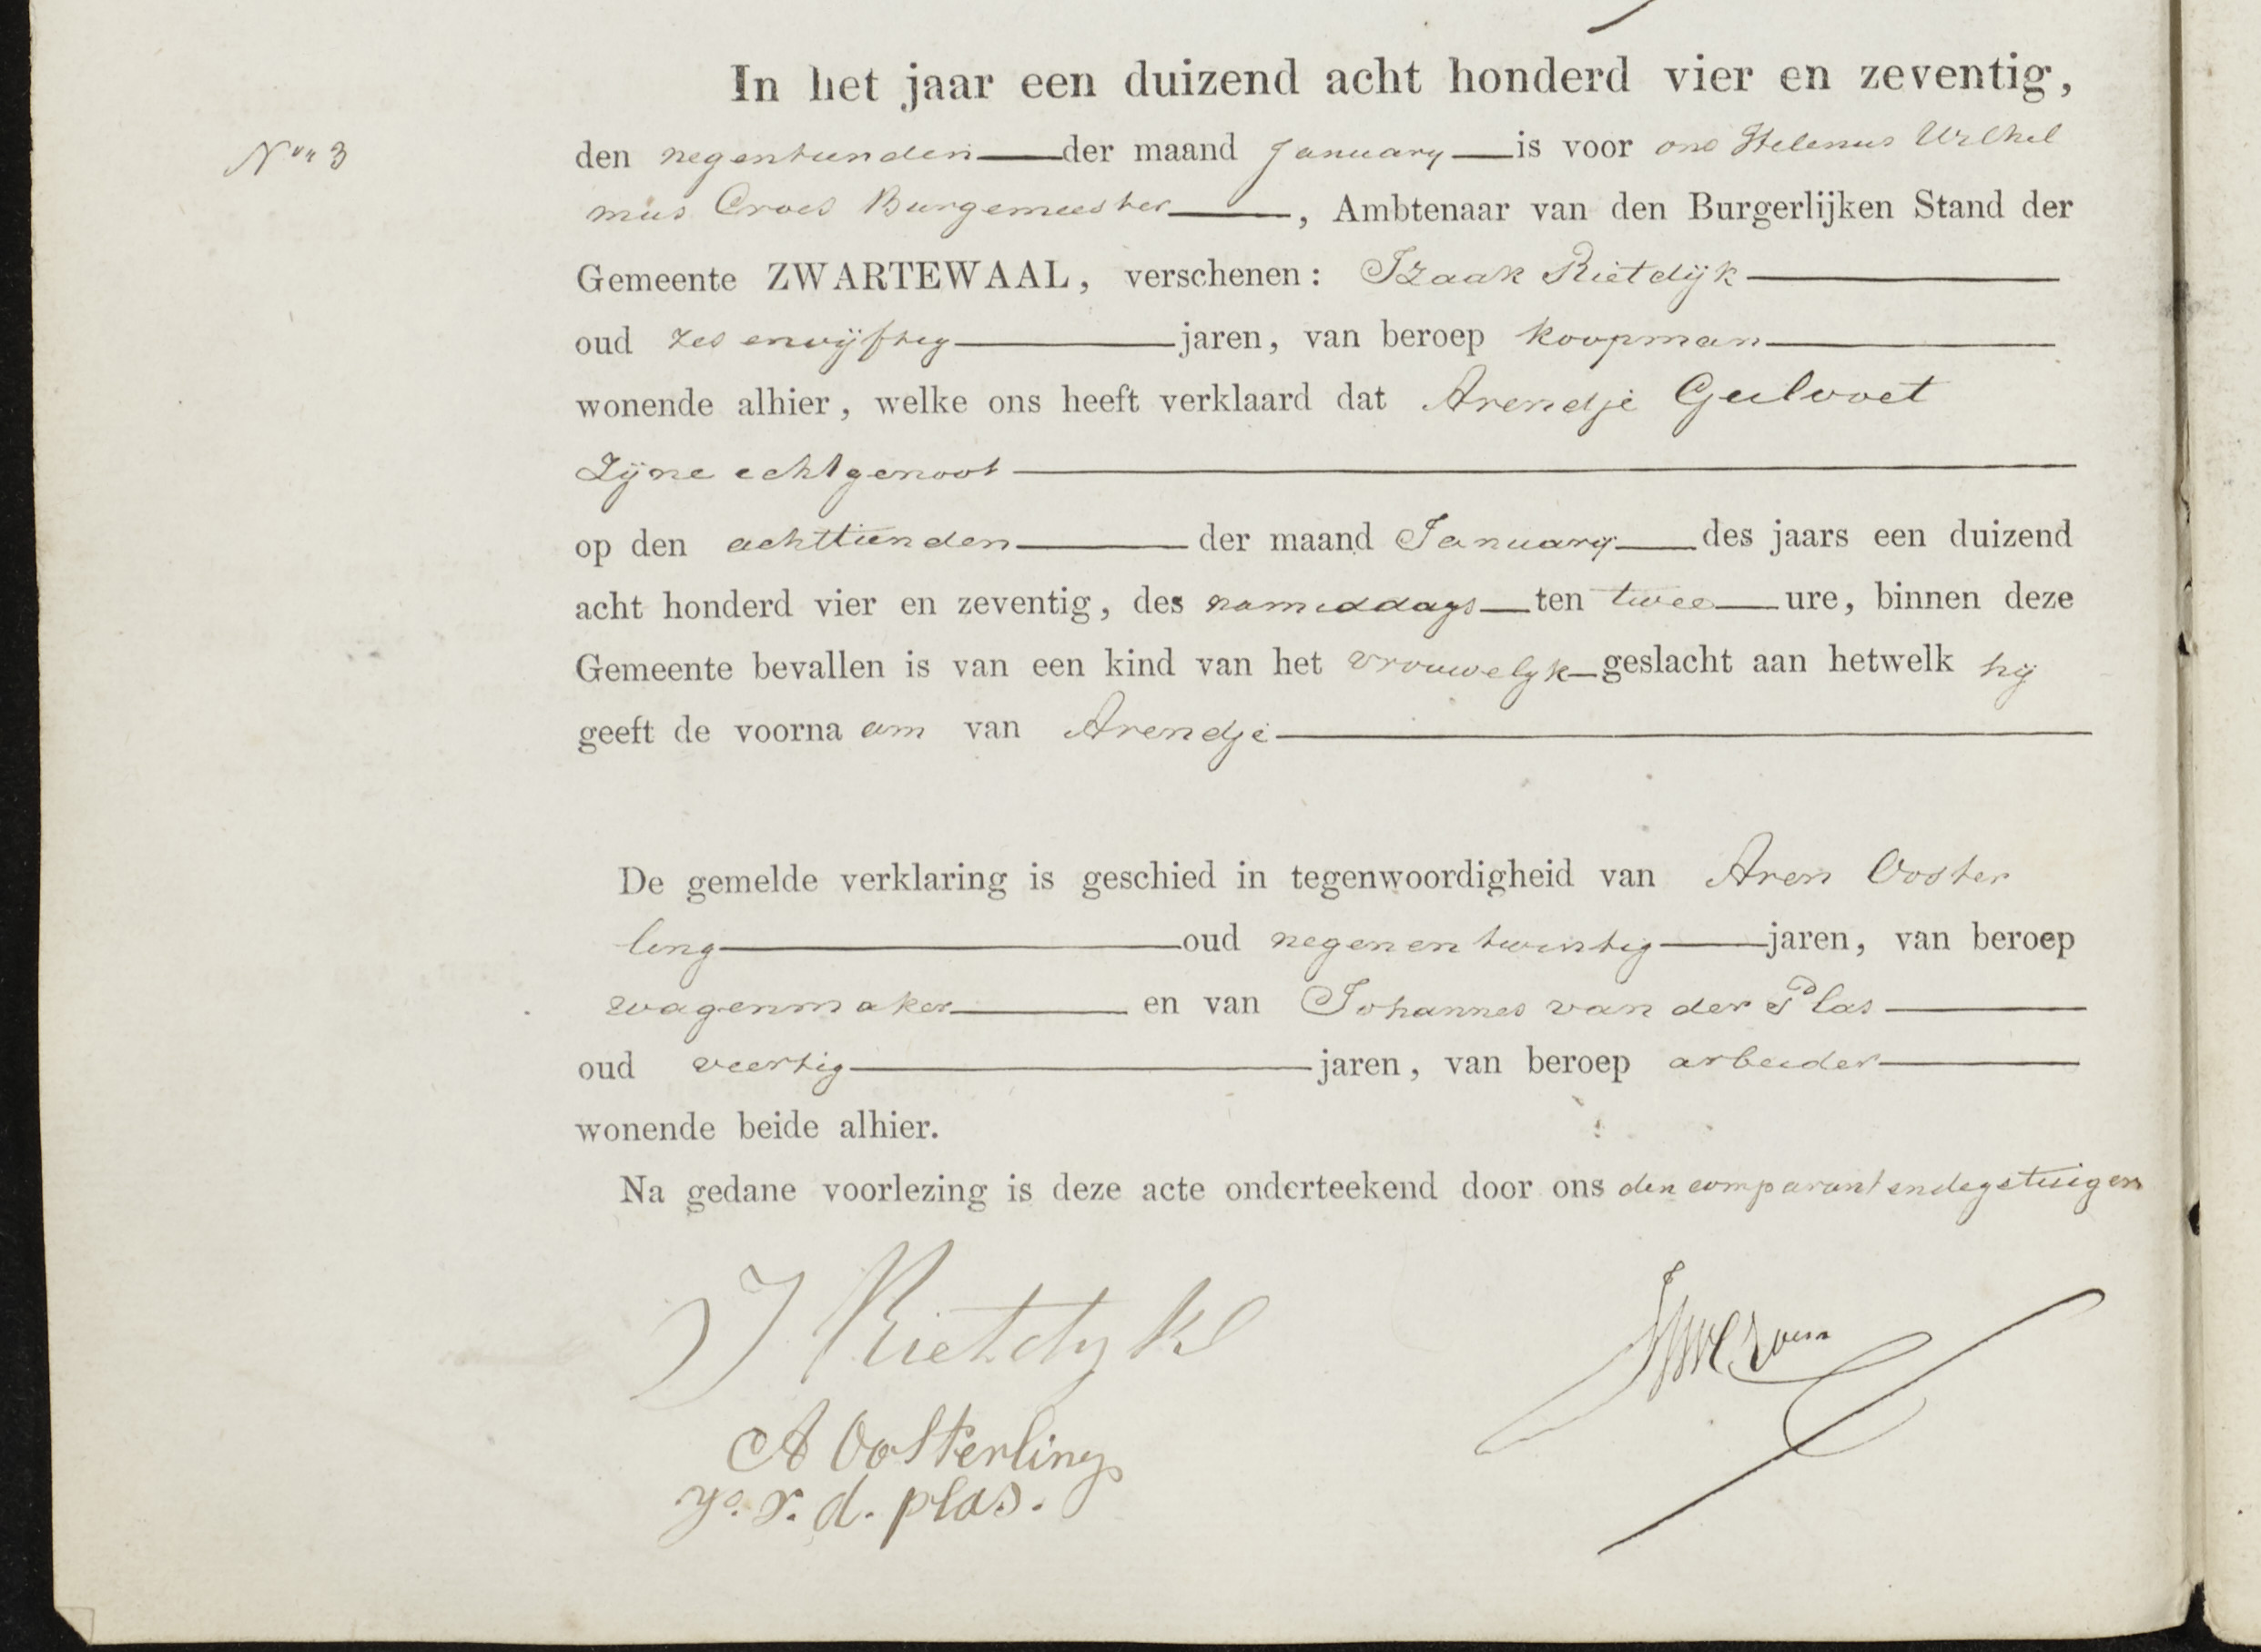 In het jaar een duizend acht honderd vier en zeventig,
Non 3
den negentienden der maand January is voor ons Helenus Wilhel
mus Croes Burgemeester, Ambtenaar van den Burgerlijken Stand der
Gemeente ZWARTEWAAL, verschenen: Izaak Rietdijk
oud zes envijftig jaren, van beroep koopman
wonende alhier, welke ons heeft verklaard dat Arendje Guldvoet
zijne echtgenoot
op den achttienden der maand January des jaars een duizend
acht honderd vier en zeventig, des namiddags ten twee ure, binnen deze
Gemeente bevallen is van een kind van het vrouwelyk geslacht aan hetwelk hij
geeft de voorna am van Arendje
De gemelde verklaring is geschied in tegenwoordigheid van Aren Ooster
ling oud negen en twintig jaren, van beroep
wagenmaker en van Johannes van der Plas
oud veertig jaren, van beroep arbeider
wonende beide alhier.
Na gedane voorlezing is deze acte onderteekend door ons den comparant en de getuigen
J Rietdyk
A Oosterling
Jo. v. d. plas.